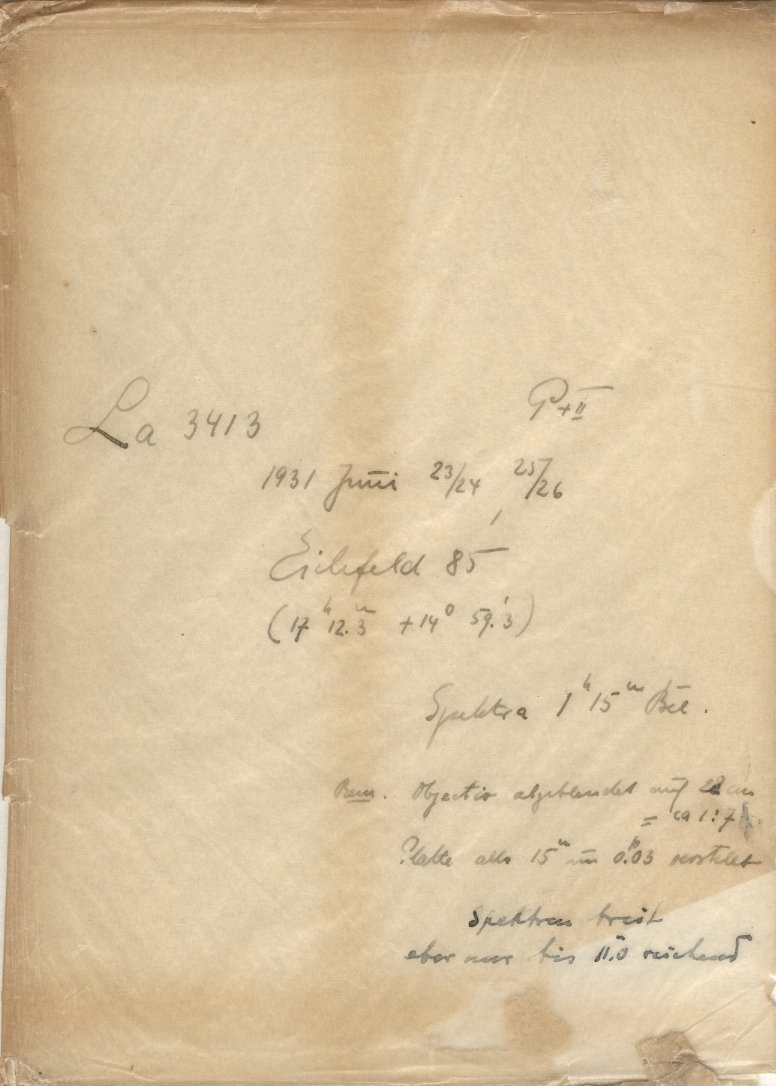 La 3413 P+II
1931 Juni 23/24, 25/26
Eichfeld 85
(17h 12.m3 +14° 59.'3)
Spektra 1h 15m Bel.
Bem. Objectiv abgeblendet auf 22 cm
= ca 1:7
Platte alle 15m um 0.03 verstellt
Spektren breit
aber nur bis 11.0 reichend